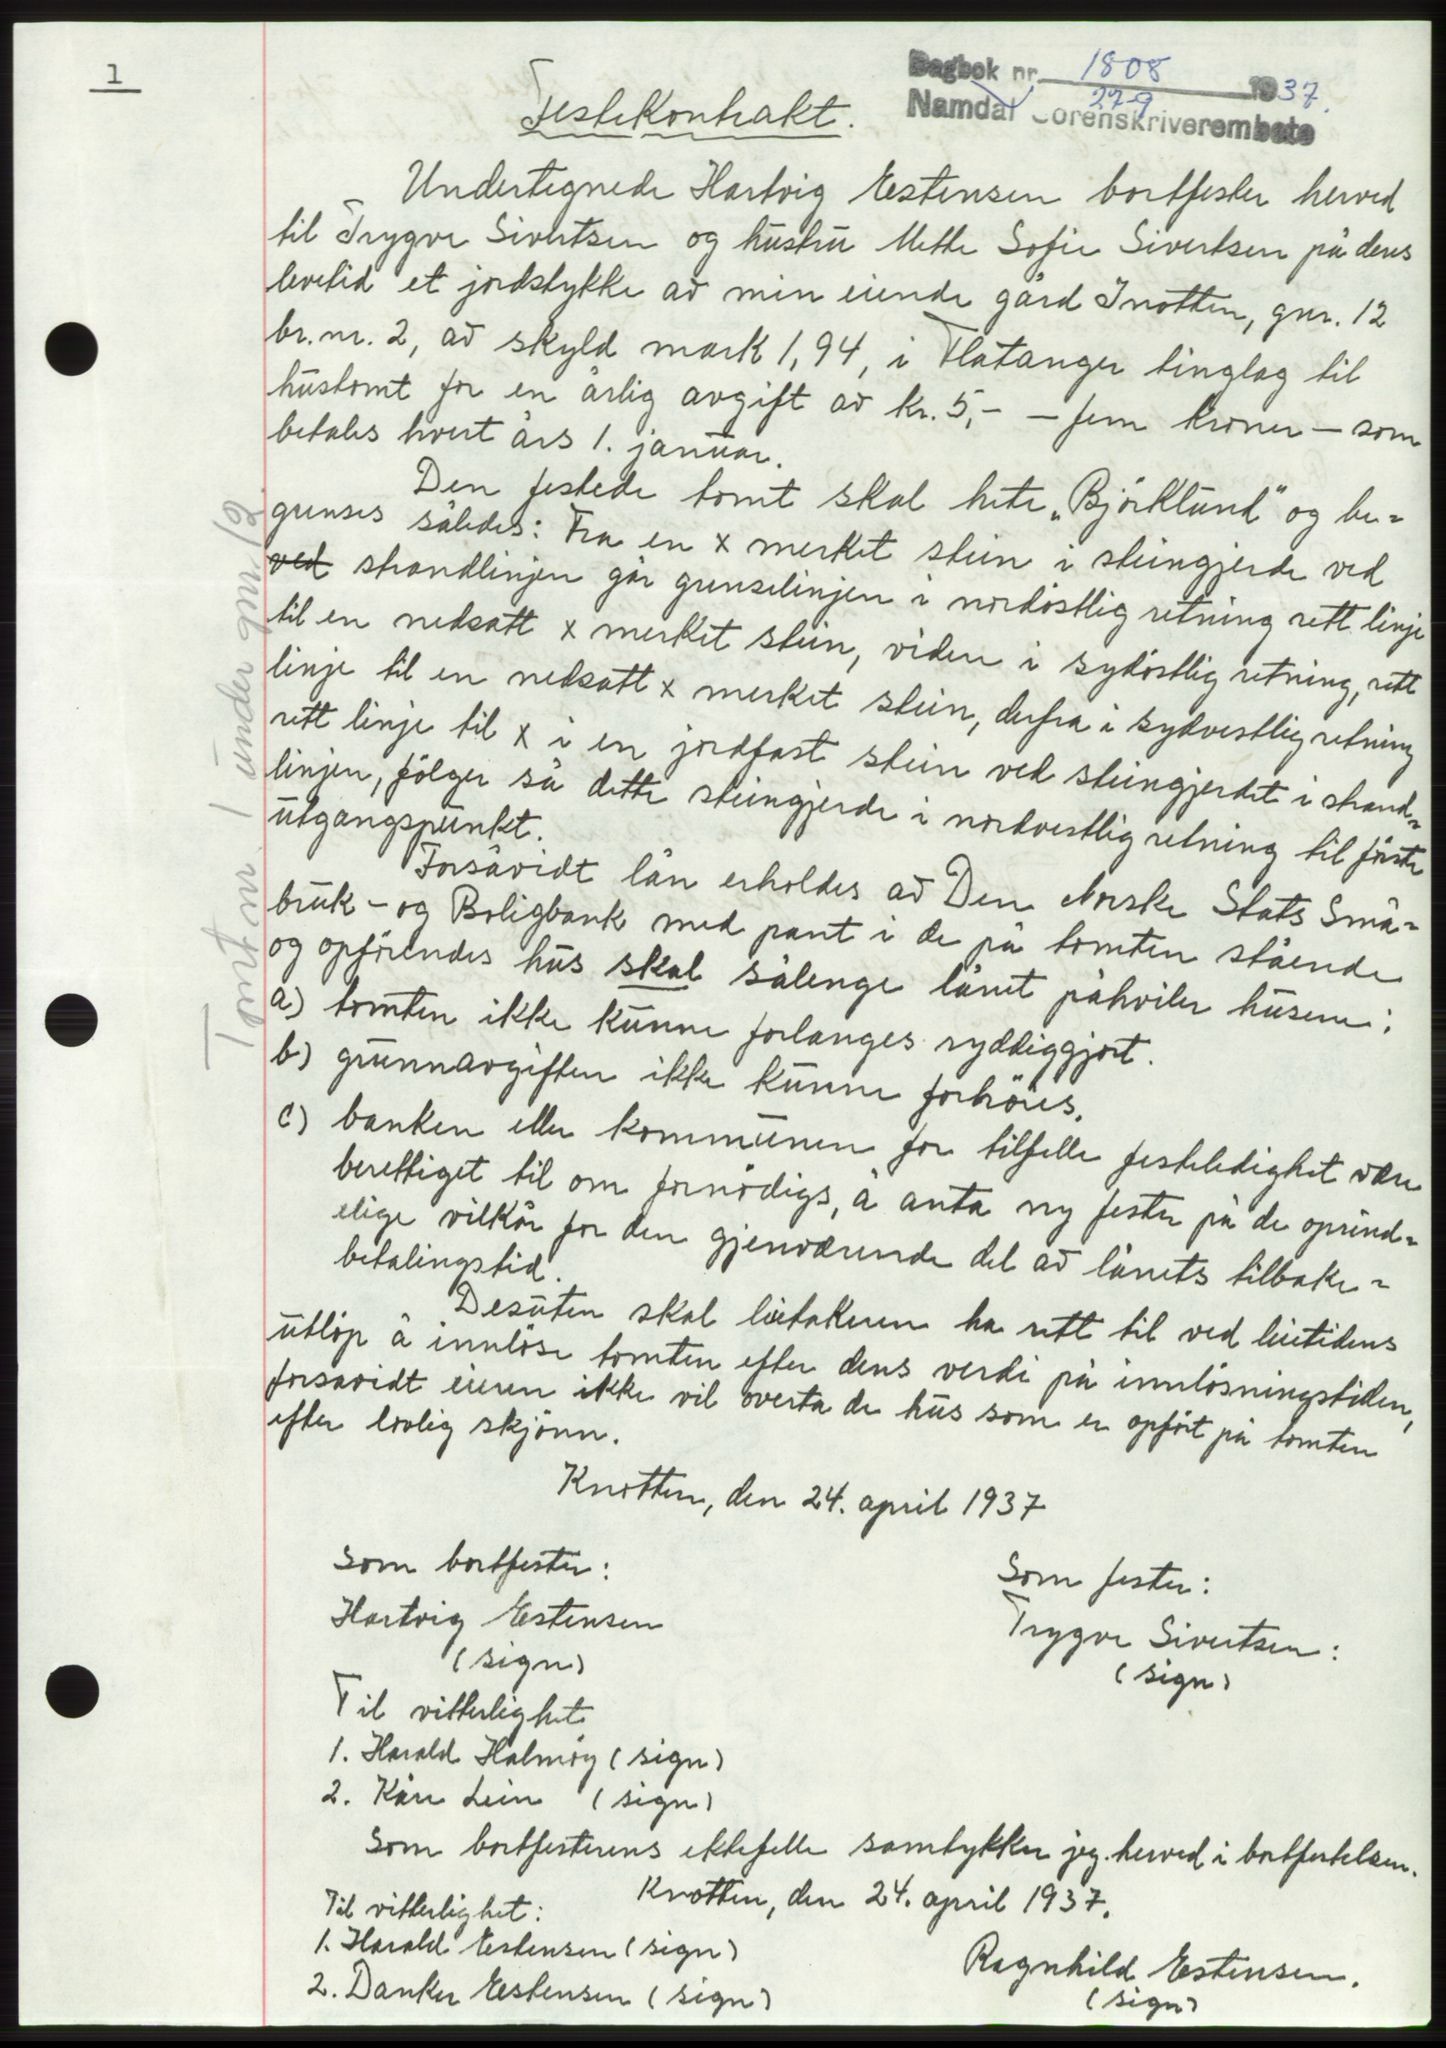 1
Dagbok nr. 1808 1937.
279
Namdal Sorenskriverembete
Festekontrakt.
Undertegnede Hartvig Estensen bortfester herved
til Trygve Sivertsen og hustru Mette Sofie Sivertsen på deres
levetid et jordstykke av min eiende gård Knotten, gnr. 12
br.nr. 2, av skyld mark 1,94, i Flatanger tinglag til
hustomt for en årlig avgift av kr. 5,- - fem kroner - som
betales hvert års 1. januar.
Den festede tomt skal hete „Björklund" og be=
grenses således: Fra en x merket stein i steingjerde ved
ved strandlinjen går grenselinjen i nordöstlig retning rett linje
til en nedsatt x merket stein, videre i sydöstlig retning, rett
linje til en nedsatt x merket stein, derfra i sydvestlig retning
rett linje til x i en jordfast stein ved steingjerdet i strand=
linjen, fölger så dette steingjerde i nordvestlig retning til förste
utgangspunkt.
Forsåvidt lån erholdes av Den Norske Stats Små=
bruk- og Boligbank med pant i de på tomten stående
og opförendes hus skal sålenge lånet påhviler husene:
a) tomten ikke kunne forlanges ryddiggjort.
b) grunnavgiften ikke kunne forhöies.
c) banken eller kommunen for tilfelle festeledighet være
berettiget til om fornödiges, å anta ny fester på de oprind=
elige vilkår for den gjenværende del av lånets tilbake=
betalingstid.
Desuten skal leietakeren ha rett til ved leietidens
utlöp å innlöse tomten efter dens verdi på innlösningstiden,
forsavidt eieren ikke vil overta de hus som er opfört på tomten
efter lovlig skjönn.
Knotten, den 24. april 1937
Som bortfester:
Hartvig Estensen
(sign)
Som fester:
Trygve Sivertsen:
(sign)
Til vitterlighet
1. Harald Halmöy (sign)
2. Kåre Lein (sign)
Som bortfesterens ektefelle samtykker jeg herved i bortfestelsen.
Knotten, den 24. april 1937.
Til vitterlighet:
1. Harald Estensen (sign)
2. Danker Estensen (sign)
Ragnhild Estensen.
(sign)
Tomt nr. 1 under gnr. 12